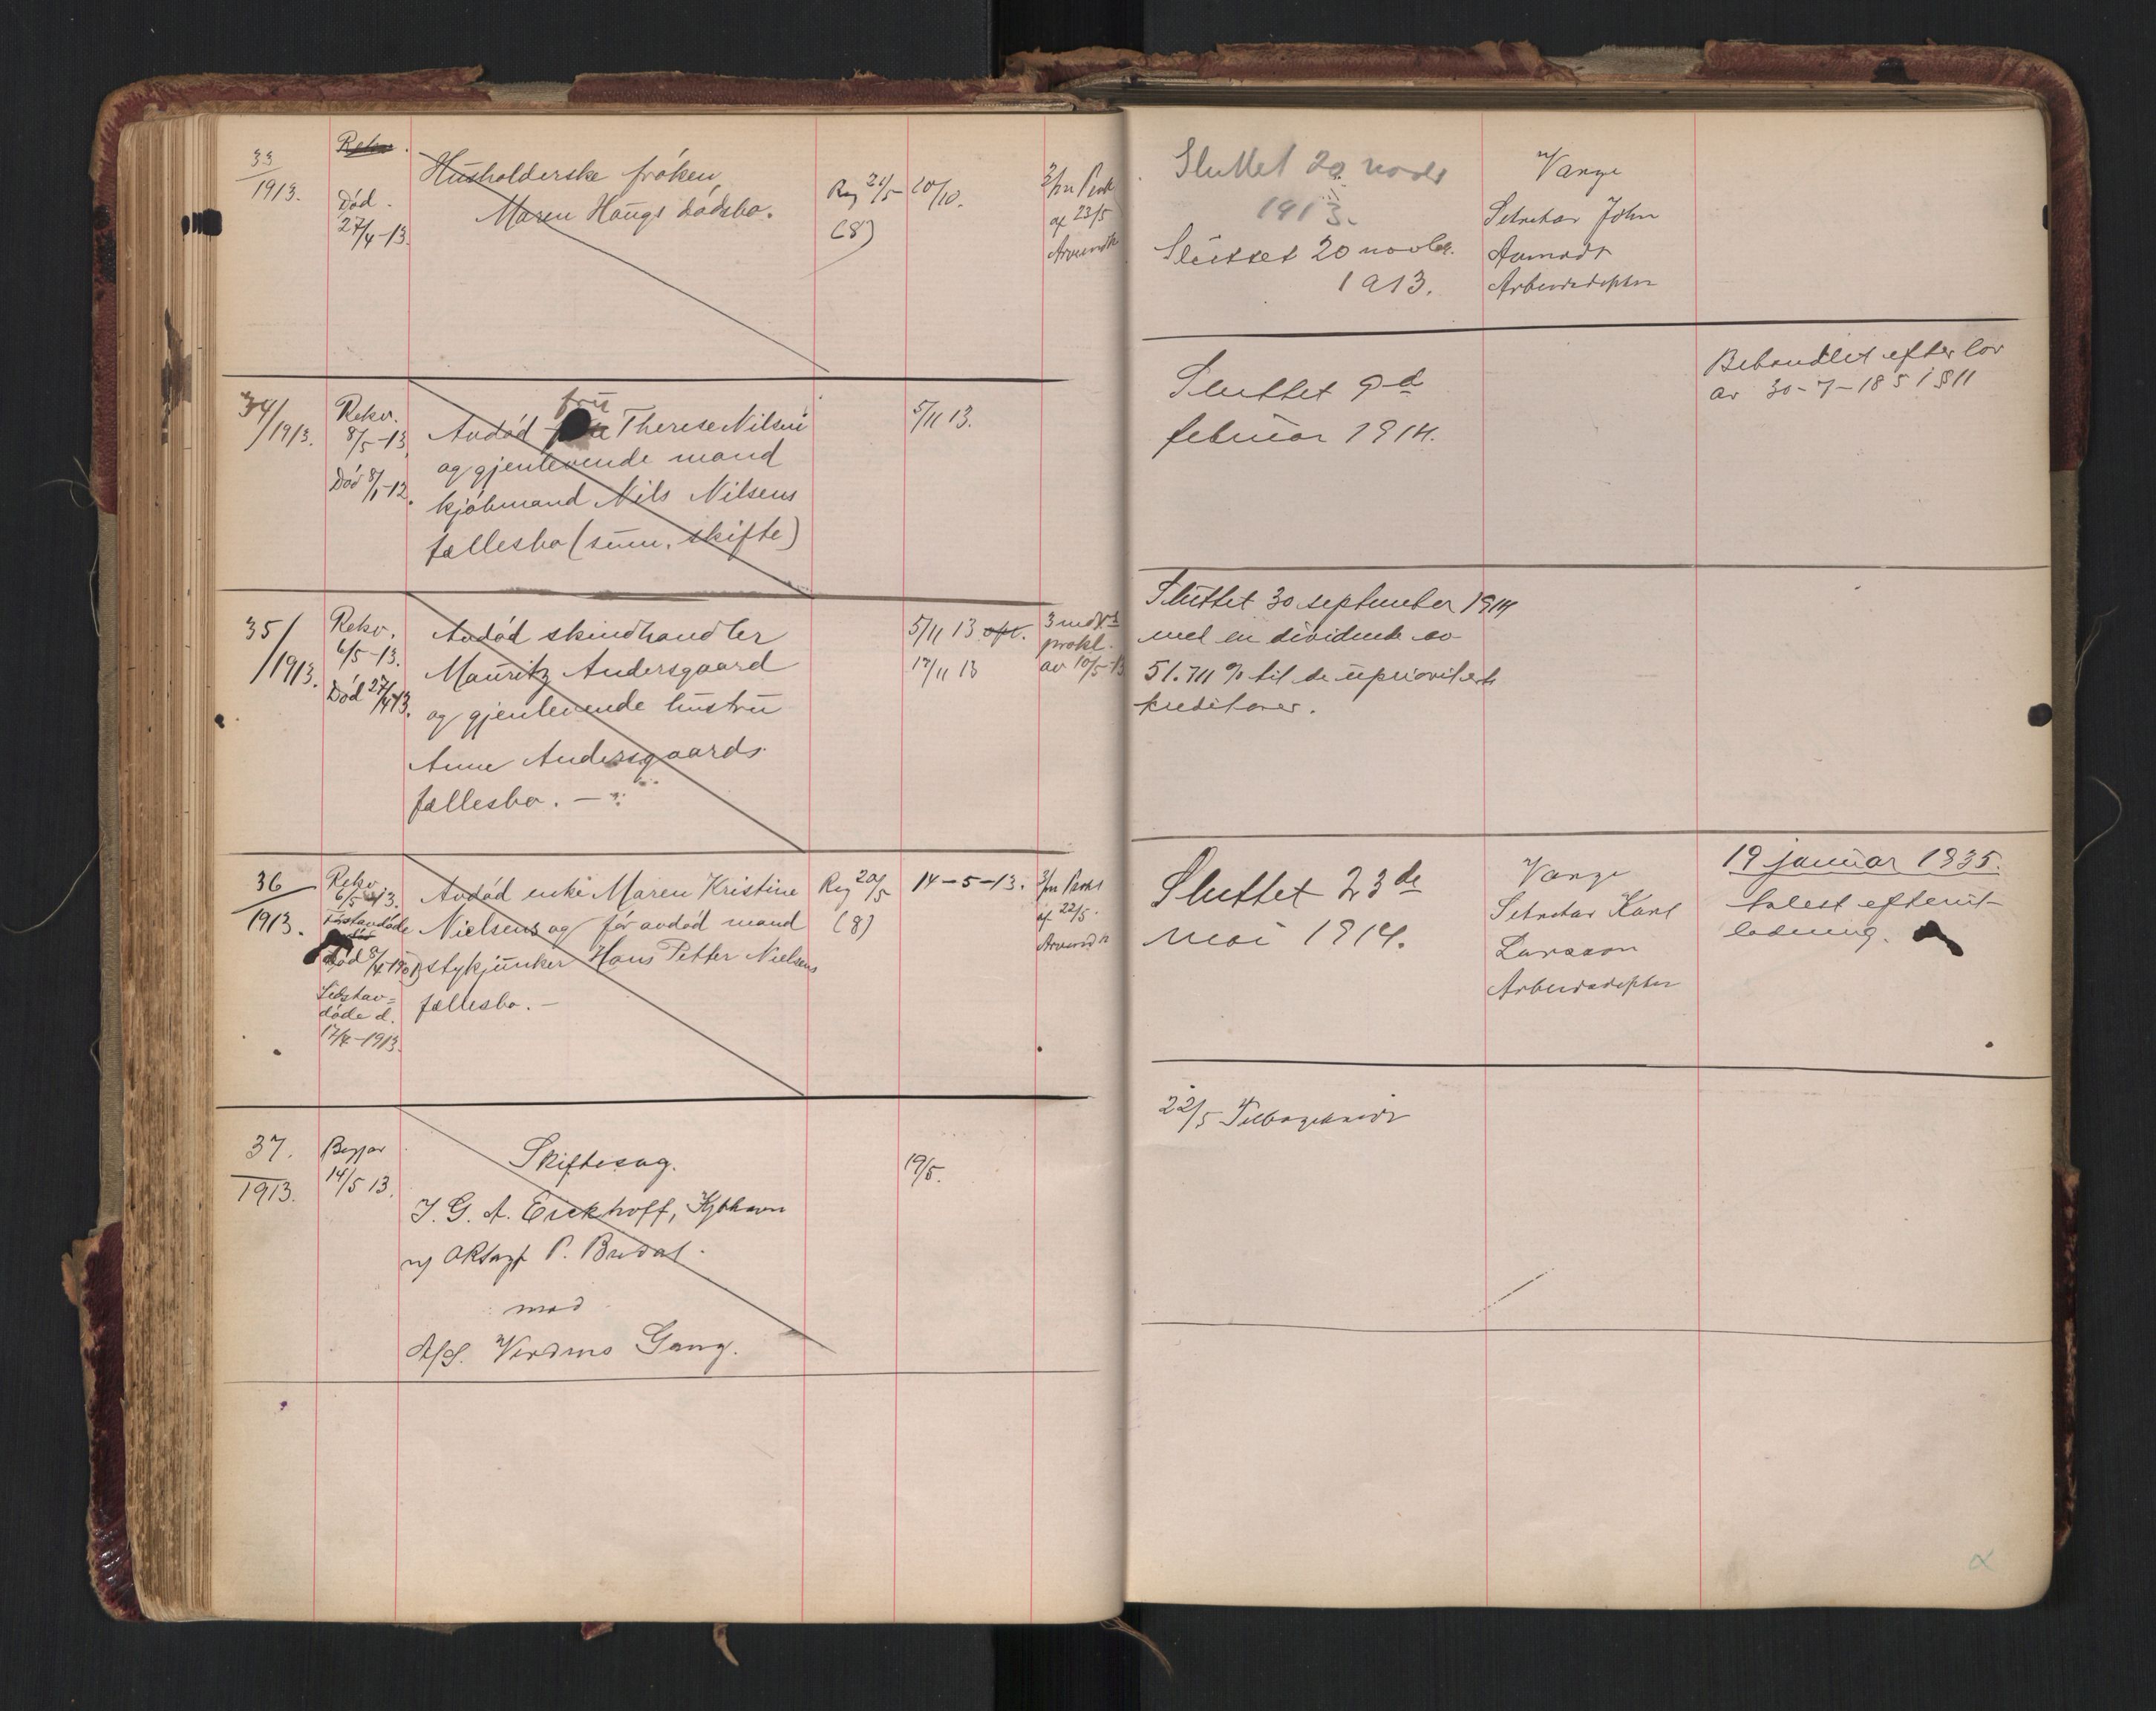 33
1913.
Rekv.
Død.
27/4-13.
Husholderske frøken
Maren Haugs dødsbo.
Reg 21/5
(8)
10/10.
3/m Prok
af 23/5
Slüttet 20 novbr
1913.
Slüttet 20 novbr.
1913.
Værge
Sekretær John
Aamodt
Arbeidsdeptm
34/
/1913.
Rekv.
8/5-13
Død 8/1-12.
Avdød frü Therese Nilsen
og gjenlevende mand
kjøbmand Nils Nilsens
fællesbo (süm. skifte)
5/11 13.
Sluttet 9-d
februar 1914.
Behandlet efter lov
av 30-7-1851 §11
35/
/1913.
Rekv.
6/5-13.
Død 27/4 13.
Avdød skindhandler
Mauritz Andersgaard
og gjenlevende hustru
Anne Andersgaards
fællesbo. —
5/11 13 opr.
17/11 13
3 mdrs
prokl.
av 10/5-13
Sluttet 30 september 1914
med en dividende av
51.711 % til de upriviterte
kreditorer.
36
1913.
Rekv.
6/5-13.
Førstavdøde
Død 8/4 1901
Sidstav=
døde d.
17/4-1913.
Avdød enke Maren Kristine
Nielsens og før avdød mand
styrkjunker Hans Petter Nielsens
fællesbo. —
Reg 20/5
(8)
14-5-13.
3/m Prokl
af 22/5.
Sluttet 23de
mai 1914.
Værge
Sekretær Karl
Larsson
Arbeidsdeptm
19 januar 1935.
holdt efterut-
lodning.
37.
1913.
Begjær
14/5 13.
Skiftesag.
J. G. A. Eickhoff, Kjøbhavn
v/ oRsagf P. Bredal.
mod
A/S. Verdens Gang.
19/5.
22/5 Tilbagekaldt